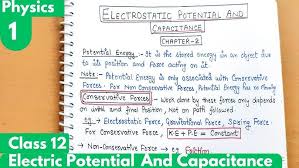 Physics
1
ELECTROSTATIC POTENTIAL AND
CAPACITANCE
CHAPTER-2
Potential Energy :- It is the stored energy in an object due
to its position and Force acting on it.
Note:- Potential Energy is only associated with Conservative
Forces. For Non Conservative Forces, Potential Energy has no
Conservative Forces :- Work done by these forces only depends
on initial and final Position, Not on path Followed.
eg:- Electrostatic Force, Gravitational Force, Spring Force
For Conservative Force, K.E + P.E = Constant
→ Non-Conservative Force :- eg Friction
Class 12
Electric Potential And Capacitance